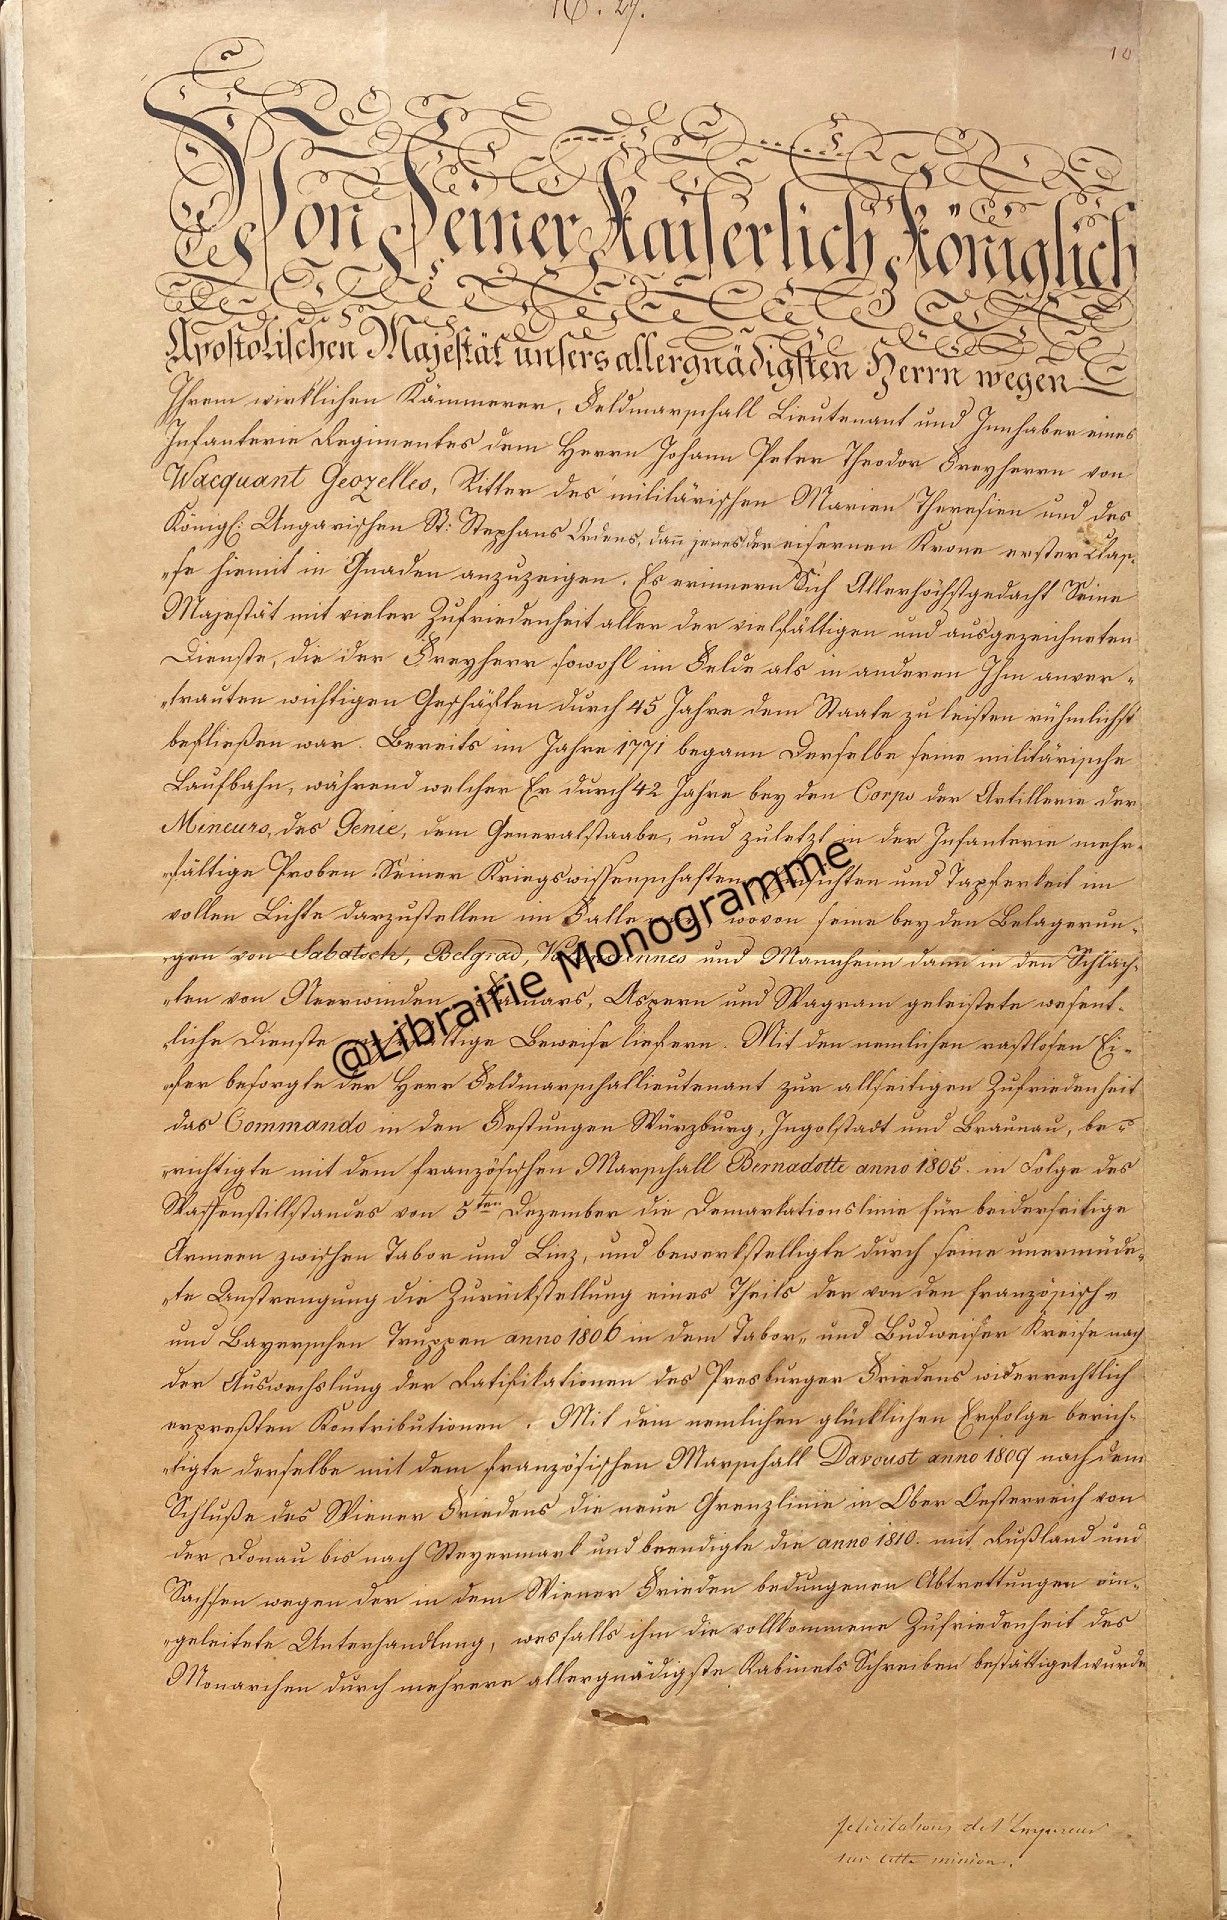 N. 27.
10
Von Seiner Kaiserlich Königlich
Apostolischen Majestät unsers allergnädigsten Herrn wegen
Ihrem wirklichen Kämmerer, Feldmarschall Lieutenant und Innhaber eines
Infanterie Regimentes dem Herrn Johann Peter Theodor Freyherrn von
Wacquant Geozelles, Ritter des militärischen Marien Theresien und des
Königl: Ungarischen St: Stephans Ordens, dann jenes der eisernen Krone erster Klas„
„se hiemit in Gnaden anzuzeigen. Es erinnern Sich Allerhöchstgedacht Seine
Majestät mit vieler Zufriedenheit aller der vielfältigen und ausgezeichneten
Dienste, die der Freyherr sowohl im Felde als in anderen Ihm anver„
„trauten wichtigen Geschäften durch 45 Jahre dem Staate zu leisten rühmlichst
befließen war. Bereits im Jahre 1771 begann Derselbe seine militärische
Laufbahn, während welcher Er durch 42 Jahre bey den Corps der Artillerie der
Mineurs, des Genie, dem Generalstaabe, und zuletzt in der Infanterie mehr„
„fältige Proben Seiner Kriegswissenschaften, Einsichten und Tapferkeit im
vollen Lichte darzustellen im Falle war, wovon seine bey den Belagerun„
„gen von Sabatsch, Belgrad, Valenciennes und Mannheim dann in den Schlach„
„ten von Neerwinden, Famars, Aspern und Wagram geleistete wesent„
„liche Dienste vollgültige Beweise liefern. Mit den nemlichen rastlosen Ei„
„fer besorgte der Herr Feldmarschallieutenant zur allseitigen Zufriedenheit
das Commando in den Festungen Würzburg, Ingolstadt und Braunau, be„
„richtigte mit dem französischen Marschall Bernadotte anno 1805. in Folge des
Waffenstillstandes von 5ten Dezember die Demarkationslinie für beiderseitige
Armeen zwischen Tabor und Linz, und bewerkstelligte durch seine unermüde„
„te Anstrengung die Zurückstellung eines Theils der von den französisch„
und Bayerschen Truppen anno 1806 in dem Tabor„ und Budweiser Kreise nach
der Auswechslung der Ratifikationen des Presburger Friedens widerrechtlich
erpreßten Kontributionen. Mit dem nemlichen glücklichen Erfolge berich„
„tigte derselbe mit dem französischen Marschall Davoust anno 1809 nach dem
Schluße des Wiener Friedens die neue Grenzlinie in Ober Oesterreich von
der Donau bis nach Steyermark und beendigte die anno 1810. mit Rußland und
Sachsen wegen der in dem Wiener Frieden bedungenen Abtrettungen ein„
„geleitete Unterhandlung, wesfalls ihm die vollkommene Zufriedenheit des
Monarchen durch mehrere allergnädigste Kabinets Schreiben bestättiget wurde
felicitations de l'Empereur
sur cette mission.
@Librairie Monogramme